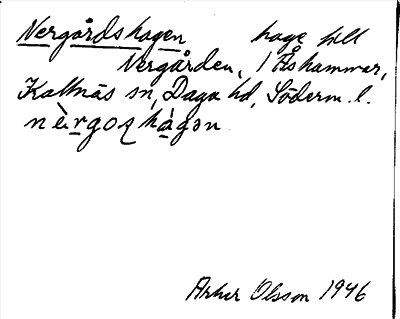 Nergårdshagen hage till
Nergården, 1 Åshammar,
Kattnäs sn, Daga hd, Söderm. l.
nèrgoʂhàgən
Arne Olsson 1946